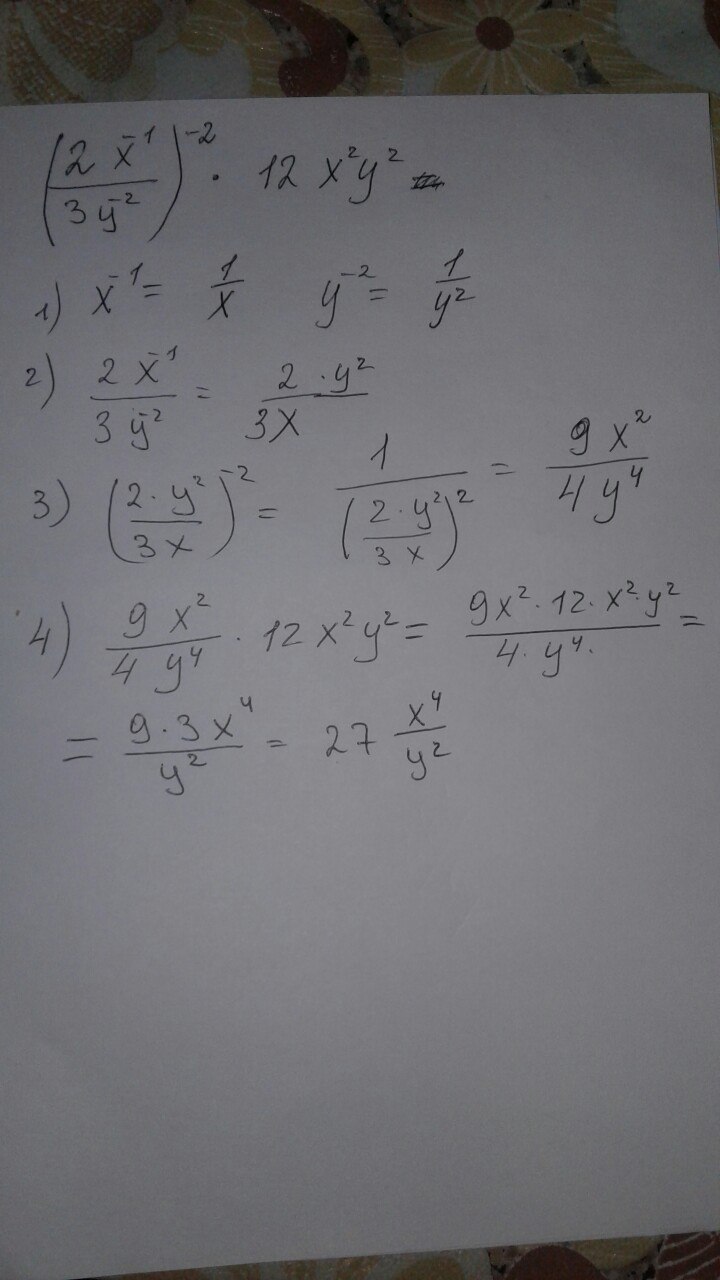 (2x⁻¹/3y⁻²)⁻² · 12 x²y²
1) x⁻¹ = 1/x y⁻² = 1/y²
2) 2x⁻¹/3y⁻² = 2·y²/3x
3) (2·y²/3x)⁻² = 1/(2·y²/3x)² = 9x²/4y⁴
4) 9x²/4y⁴ · 12x²y² = 9x²·12·x²·y²/4·y⁴· =
= 9·3x⁴/y² = 27 x⁴/y²